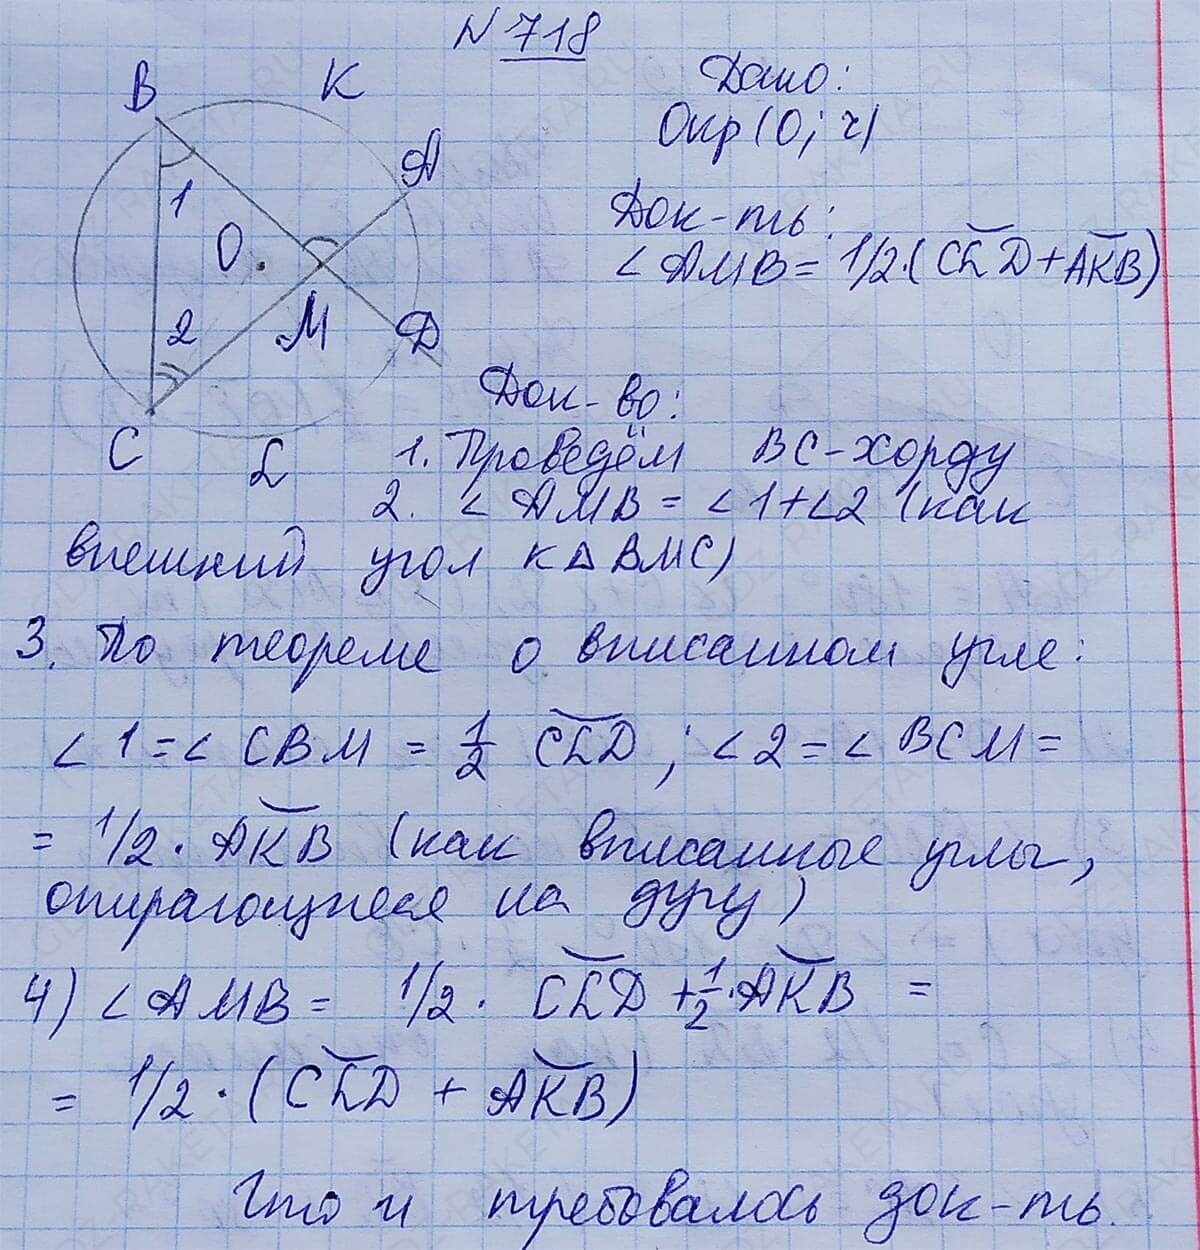 N 718
B K
Дано:
Окр (O; r)
A
1
Док-ть:
∠AMB = 1/2·(C͝LD + A͝KB)
O
2 M D
Док-во:
C L
1. Проведём BC-хорду
2. ∠AMB = ∠1+∠2 (как
внешний угол к Δ BMC)
3. По теореме о вписанном угле:
∠1 = ∠CBM = 1/2 C͝LD ; ∠2 = ∠BCM =
= 1/2 · A͝KB (как вписанные углы,
опирающиеся на дугу)
4) ∠AMB = 1/2 · C͝LD + 1/2 · A͝KB =
= 1/2 · (C͝LD + A͝KB)
Что и требовалось док-ть.